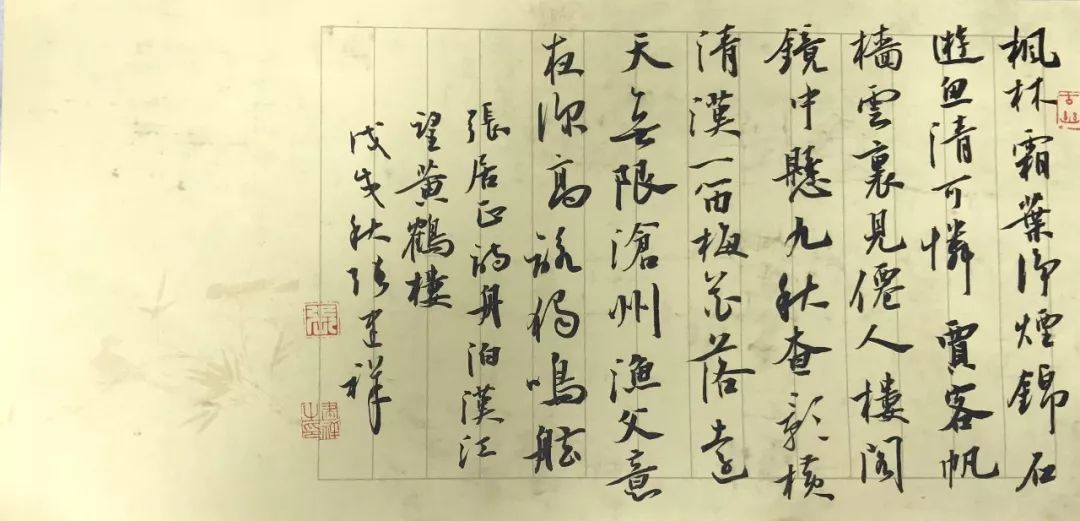 楓林霜葉淨煙錦石
遊魚清可憐賈客帆
檣雲裏見僊人樓閣
鏡中懸九秋查影橫
清漢一笛梅花落遠
天無限滄州漁父意
夜深高詠獨鳴舷
張居正詩舟泊漢江
望黃鶴樓
戊戌秋張建祥